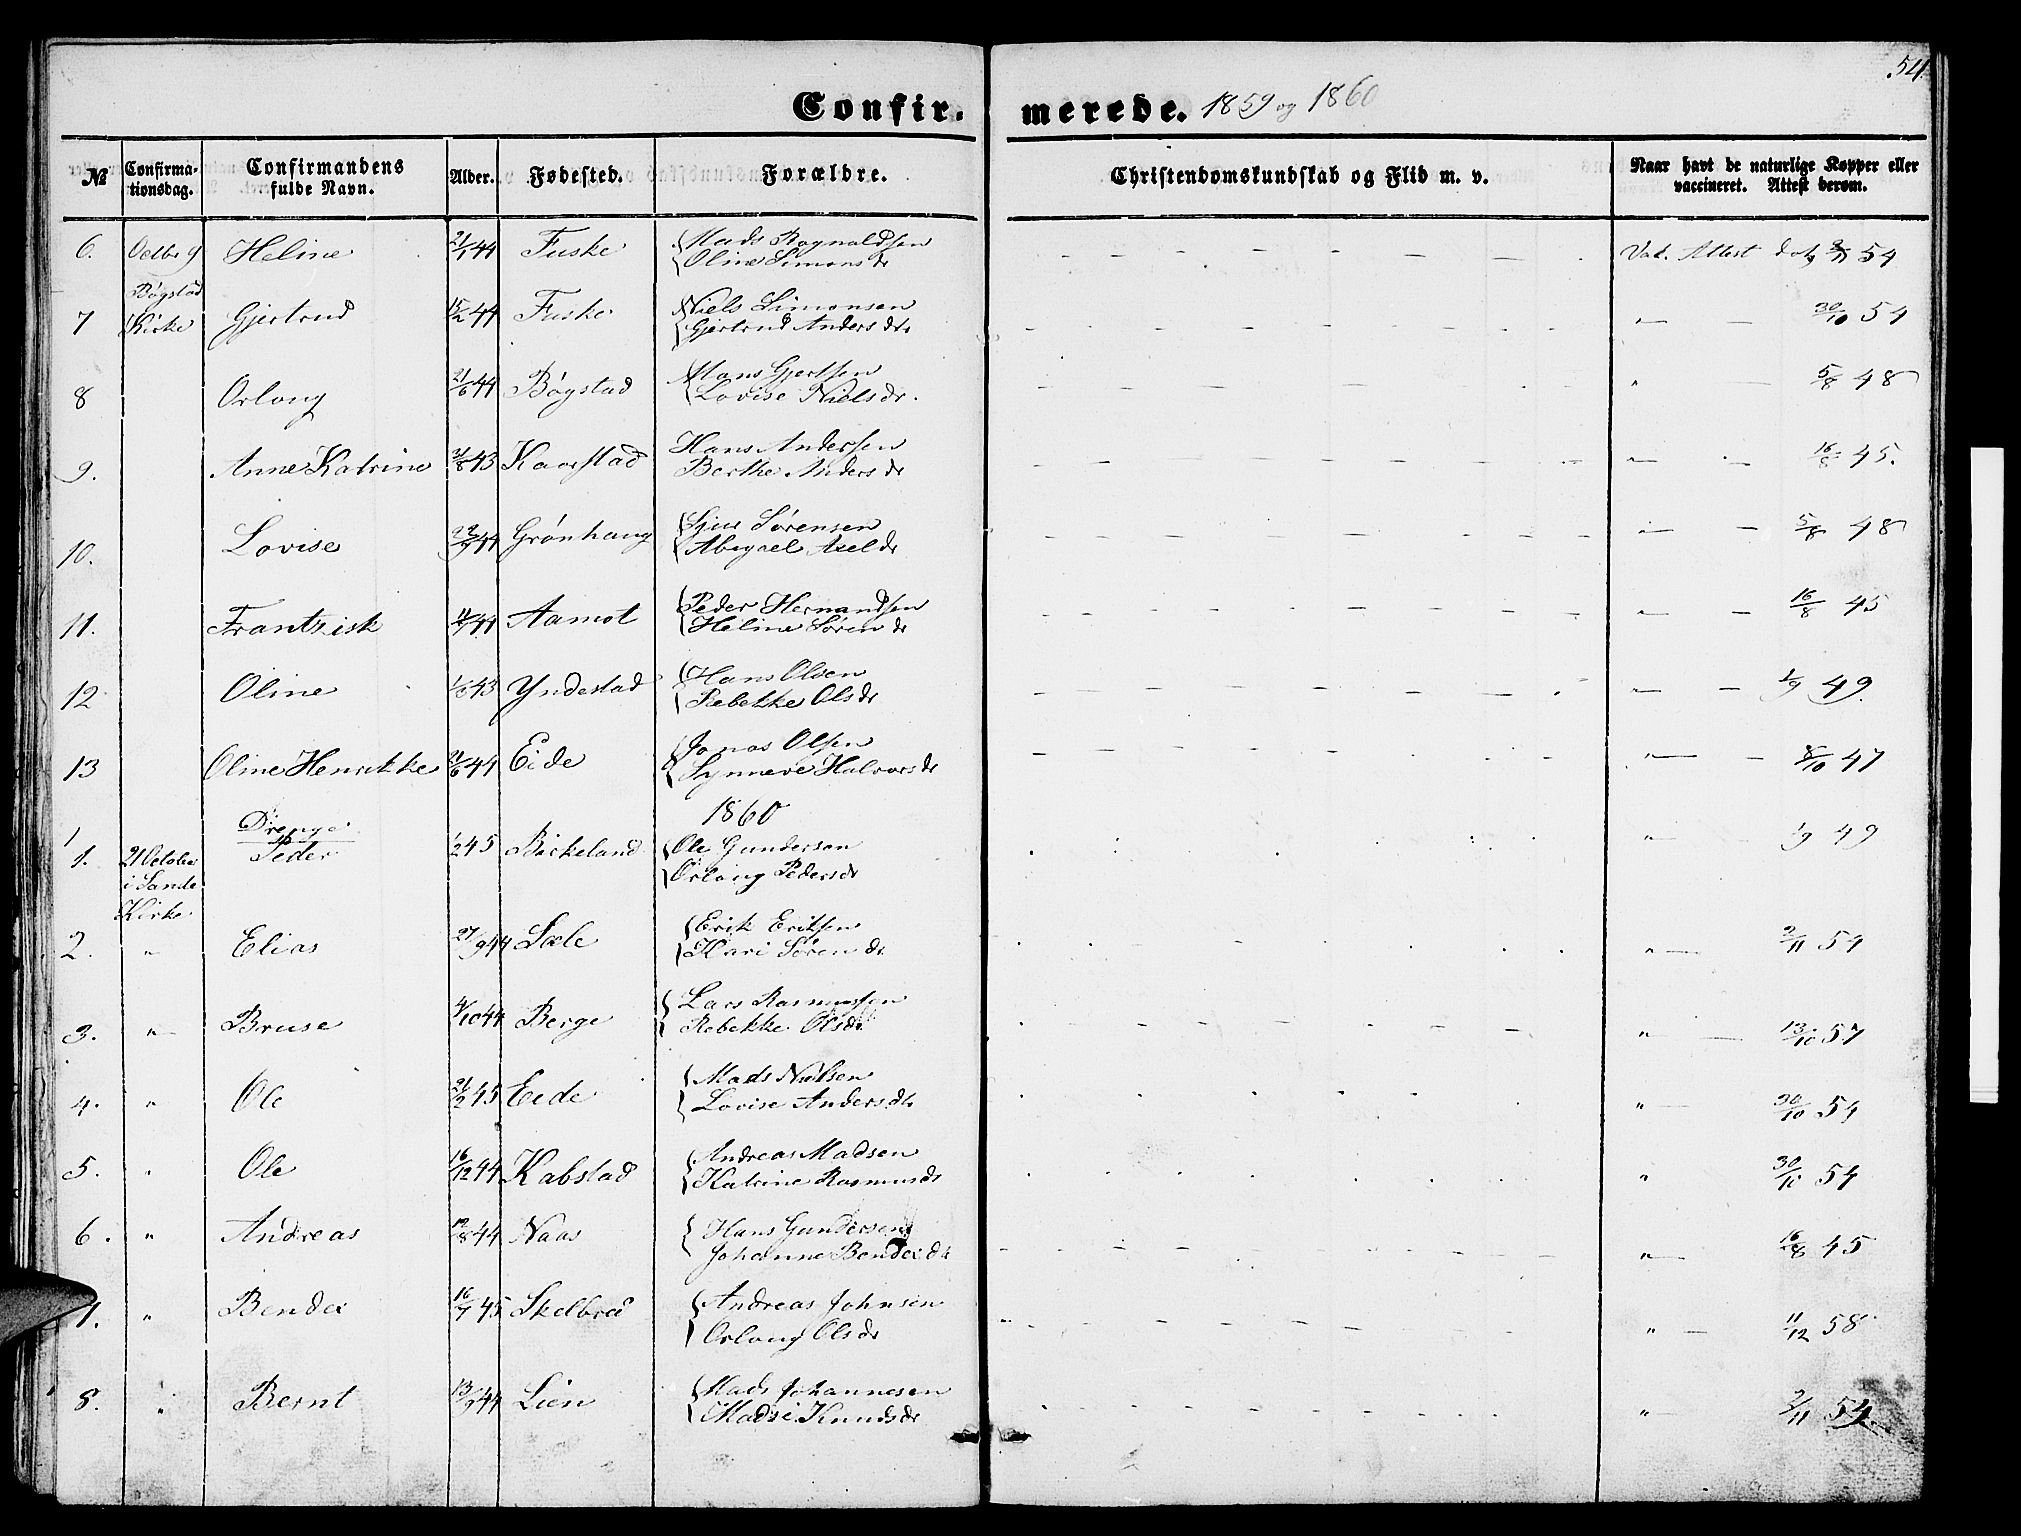 54.
Confirmerede. 1859 og 1860
№ Confirmationsdag. Confirmandens fulde Navn. Alder. Fødested. Forældre. Christendomskundskab og Flid m. v. Naar havt de naturlige Kopper eller vaccineret. Attest derom.
6. Heline 21/1 44 Fuske Mads Ragnaldsen Vac. Attest dat 54
Oline Simonsdr
Bogstad
7 Kirke Gjertrud 15/2 44 Fuske Niels Simonsen „ — 30/10 54
Gjertrud Andersdtr
8 Orlong 21/6 44 Bogstad Hans Gjertsen „ — 5/8 48
Lovise Nielsdr.
9. Anne Katrine 43 Kaarstad Hans Andersen „ — 16/8 45.
Berthe Andersdr
10. Lovise 44 Grønhaug Sjur Sørensen „ — 5/8 48
Abigael Axeldr
11. Frantzisk 44 Aamot Peder Hermandsen „ — 16/8 45
Heline Sørendr
12 Oline 43 Yndestad Hans Olsen „ — 1/9 49.
Rebekke Olsdr
13 Oline Henrikke 44 Eide Jonas Olsen „ — 8/10 47
Synneve Halvorsdr
1860
Drenge
1. 21 October i Sande Kirke Peder 1/2 45 Birkeland Ole Gundersen „ — 1/9 49
Orlong Pedersdr
2. „ Elias 27/9 44 Sæle Erik Eriksen „ — 2/11 54
Kari Sørendr
3. „ Bruse 4/10 44 Berge Lars Rasmussen „ — 13/10 57
Rebekke Olsdr
4. „ Ole 21/2 45 Eide Mads Nielsen „ — 30/10 54
Lovise Andersdtr
5. „ Ole 16/12 44 Kabstad Andreas Madsen „ 30/10 54
Katrine Rasmusdr
6. „ Andreas 12/8 44 Naas Hans Gundersen „ — 16/8 45
Johanne Bendixdr
7. „ Bendix 16/7 45 Skelbred Andreas Johnsen „ — 11/12 58
Orlong Olsdr
8. „ Bernt 13/9 44 Lien Mads Johannesen „ — 2/11 54.
Madsi Knudsdr